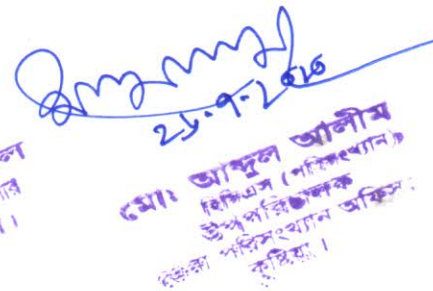 ২১.৭.২০২০
মোঃ আব্দুল আলীম
বিসিএস (পরিসংখ্যান)
উপপরিচালক
জেলা পরিসংখ্যান অফিস,
কুষ্টিয়া।